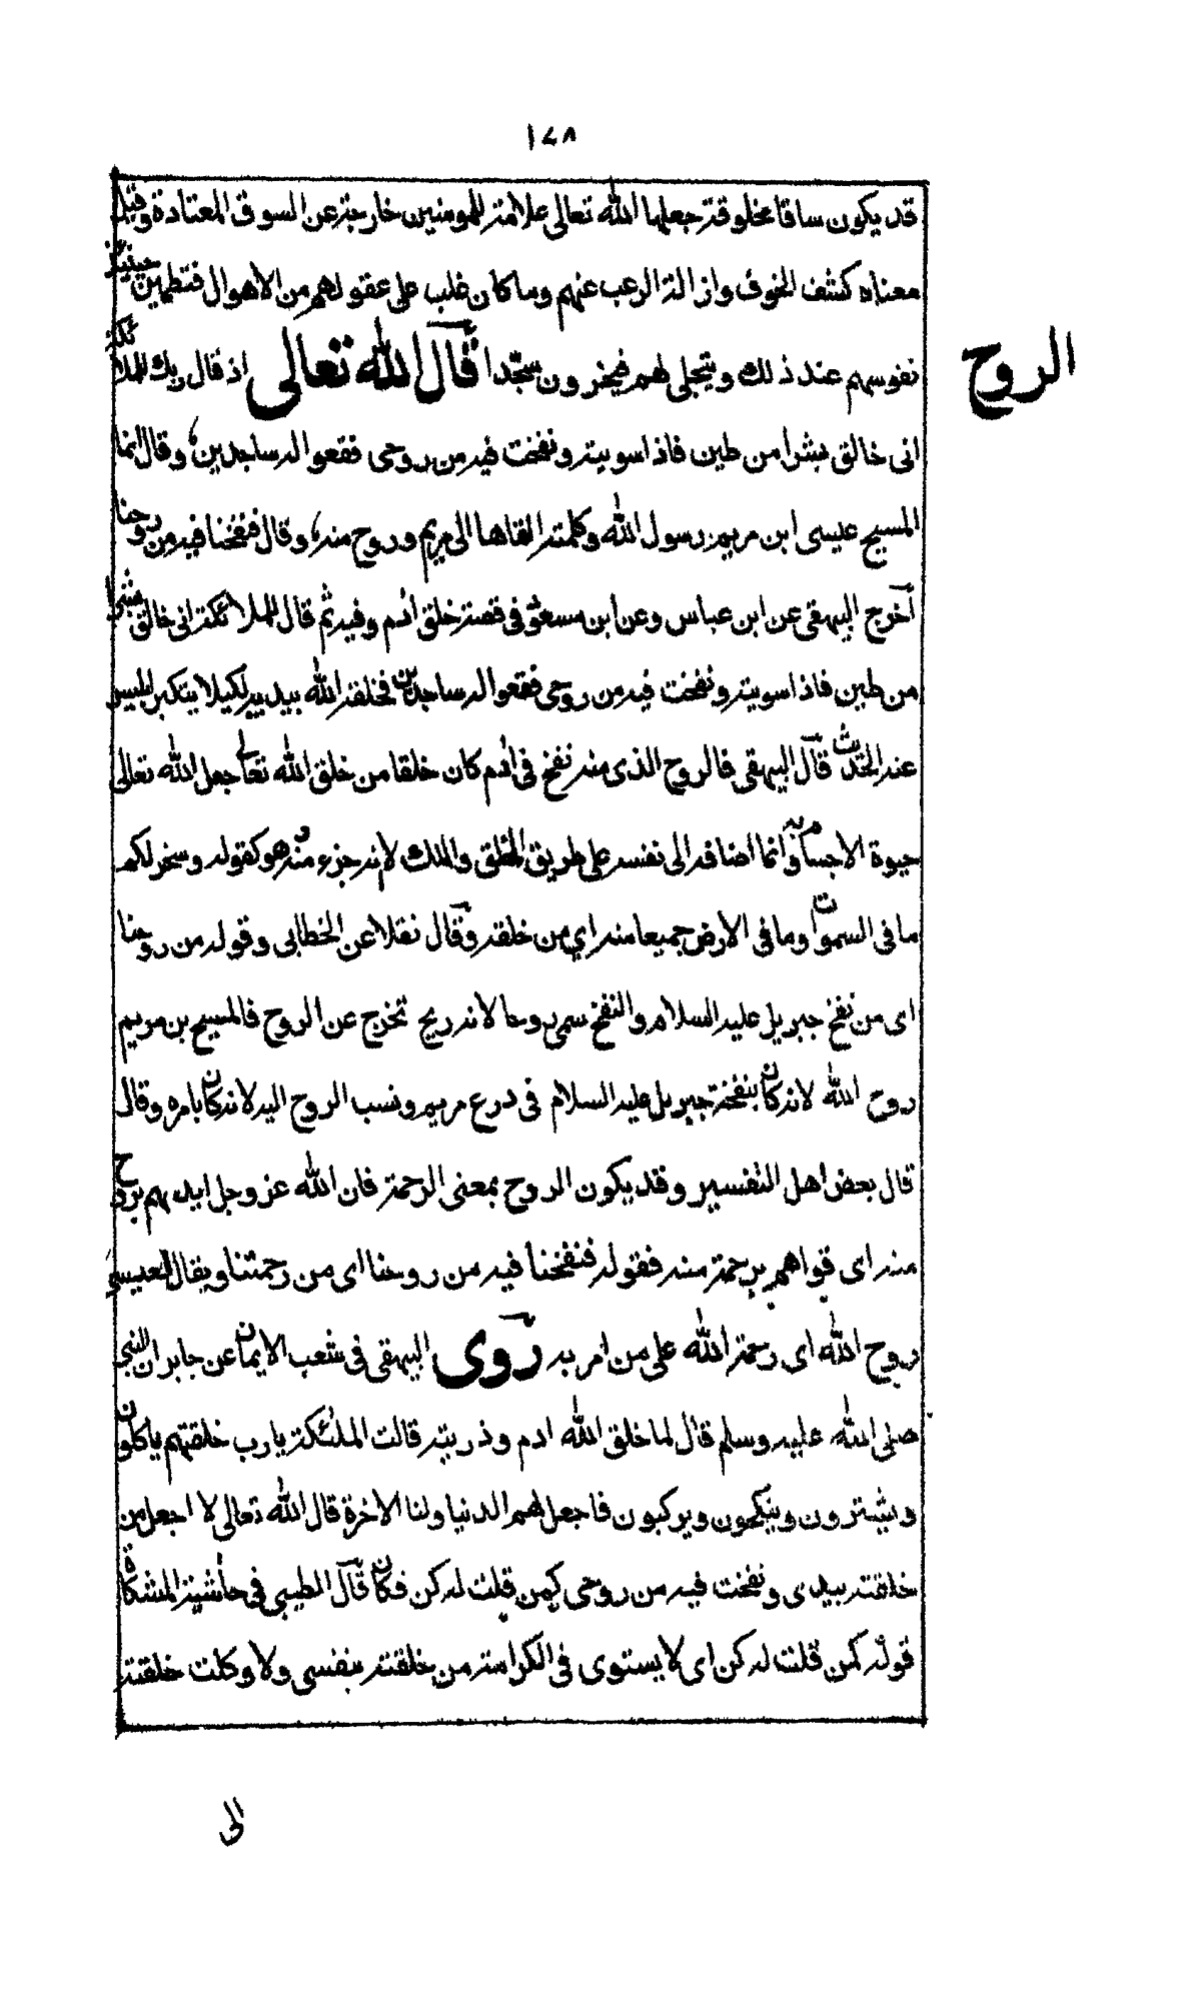 ١٤٨
قد يكون ساقا مخلوقة جعلها الله تعالى علامة للمومنين خارجة عن السوق المعتادة وقيل
معناه كشف الخوف وازالة الرعب عنهم وما كان غلب على عقولهم من الاهوال فتطمئن حينئذ
نفوسهم عند ذلك ويتجلى لهم فيخرون سجّدا قال الله تعالى اذ قال ربك للملائكة
الروح
انى خالق بشرا من طين فاذا سويته ونفخت فيه من روحى فقعوا له ساجدين، وقال انما
المسيح عيسى ابن مريم رسول الله وكلمته القاها الى مريم وروح منه، وقال فنفخنا فيه من روحنا
آخرج البيهقى عن ابن عباس وعن ابن مسعود فى قصة خلق ادم وفيه ثم قال للملائكة انى خالق بشرا
من طين فاذا سويته ونفخت فيه من روحى فقعوا له ساجدين فخلقه الله بيديه لكيلا يتكبر ابليس
عنه الحديث قال البيهقى فالروح الذى منه نفخ فى ادم كان خلقا من خلق الله تعالى جعل الله تعالى
حيوة الاجسام به وانما اضافه الى نفسه على طريق الخلق والملك لا انه جزء منه وهو كقوله وسخر لكم
ما فى السموات وما فى الارض جميعا منه اي من خلقه وقال نقلا عن الخطابى وقوله من روحنا
اى من نفخ جبريل عليه السلام والنفخ سمى روحا لانه ريح تخرج عن الروح فالمسيح بن مريم
روح الله لانه كان بنفخة جبريل عليه السلام فى درع مريم ونسب الروح اليه لانه كان بامره وقال
قال بعض اهل التفسير وقد يكون الروح بمعنى الرحمة فان الله عز وجل ايدهم بروح
منه اى قواهم برحمة منه فقوله فنفخنا فيه من روحنا اى من رحمتنا ويقال لعيسى
روح الله اى رحمة الله على من امر به روى البيهقى فى شعب الايمان عن جابر ان النبى
صلى الله عليه وسلم قال لما خلق الله ادم وذريته قالت الملئكة يارب خلقتهم ياكلون
ويشربون وينكحون ويركبون فاجعل لهم الدنيا ولنا الاخرة قال الله تعالى لا اجعل من
خلقته بيدى ونفخت فيه من روحى كمن قلت له كن فكان قال الطيبى فى حاشية المشكاة
قوله كمن قلت له كن اى لا يستوى فى الكرامة من خلقته بنفسى ولا وكلت خلقته
الى